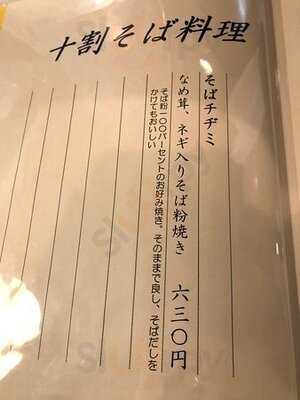 十割そば料理
そばチヂミ
なめ茸、ネギ入りそば粉焼き　六三〇円
そば粉一〇〇パーセントのお好み焼き。そのままで良し、そばだしを
かけてもおいしい